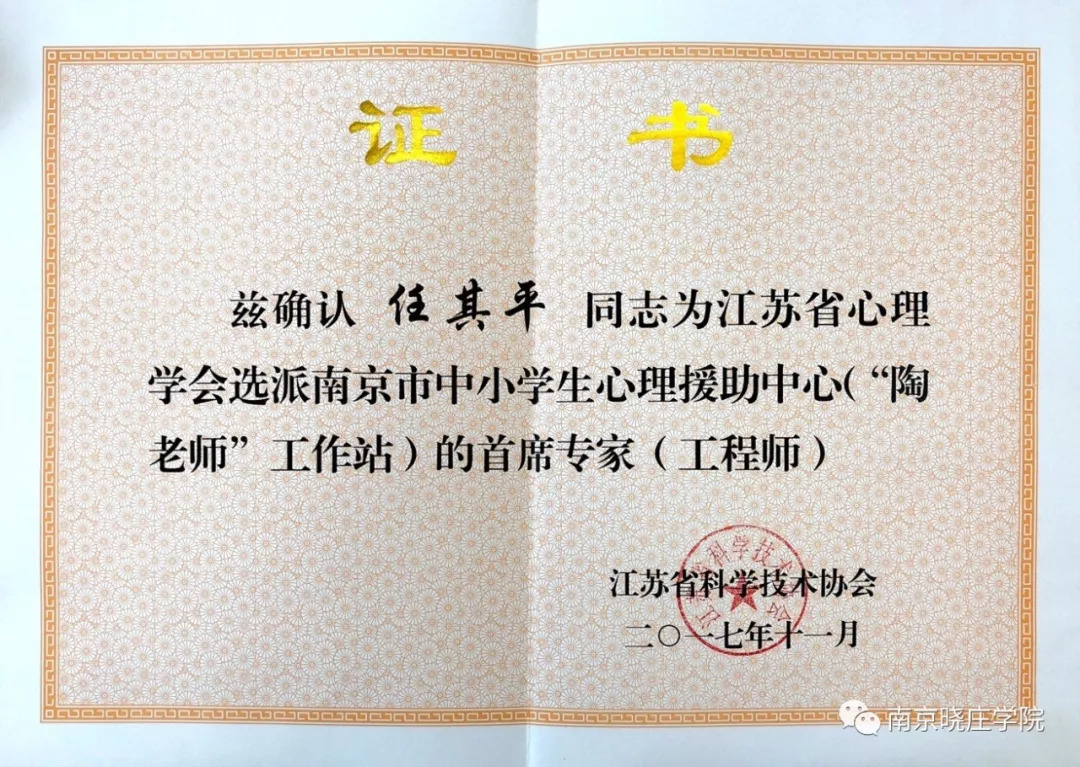 证 书
兹确认 任其平 同志为江苏省心理
学会选派南京市中小学生心理援助中心(“陶
老师”工作站)的首席专家(工程师)
江苏省科学技术协会
江苏省科学技术协会
二〇一七年十一月
南京晓庄学院